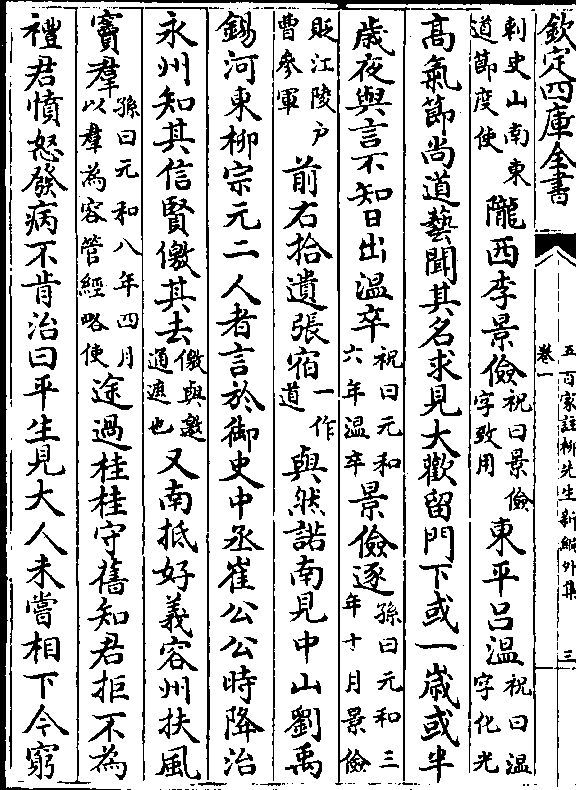 欽定四庫全書
五百家註柳先生新編外集
卷一
三
刺史山南東道節度使隴西李景儉祝曰景儉字致用東平呂溫祝曰溫字化光
高氣節尚道藝聞其名求見大歡留門下或一歲或半
歲夜與言不知日出溫卒祝曰元和六年溫卒景儉逐孫曰元和三年十月景儉
貶江陵户曹參軍前右拾遺張宿一作道與然諾南見中山劉禹
錫河東柳宗元二人者言於御史中丞崔公公時降治
永州知其信賢儌其去儌與邀通遮也又南抵好義容州扶風
竇羣孫曰元和八年四月以羣為容管經略使途過桂桂守舊知君拒不為
禮君憤怒發病不肯治曰平生見大人未嘗相下今窮